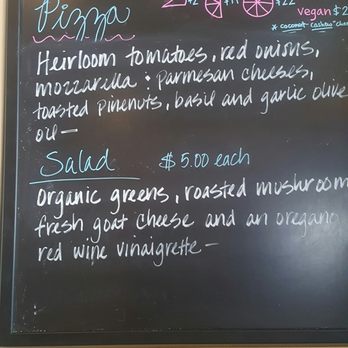 Pizza
vegan $2
* coconut-cashew "che
Heirloom tomatoes, red onions,
mozzarella & parmesan cheeses,
toasted pinenuts, basil and garlic olive
oil —
Salad $5.00 each
Organic greens, roasted mushroom
fresh goat cheese and an oregano
red wine vinaigrette —